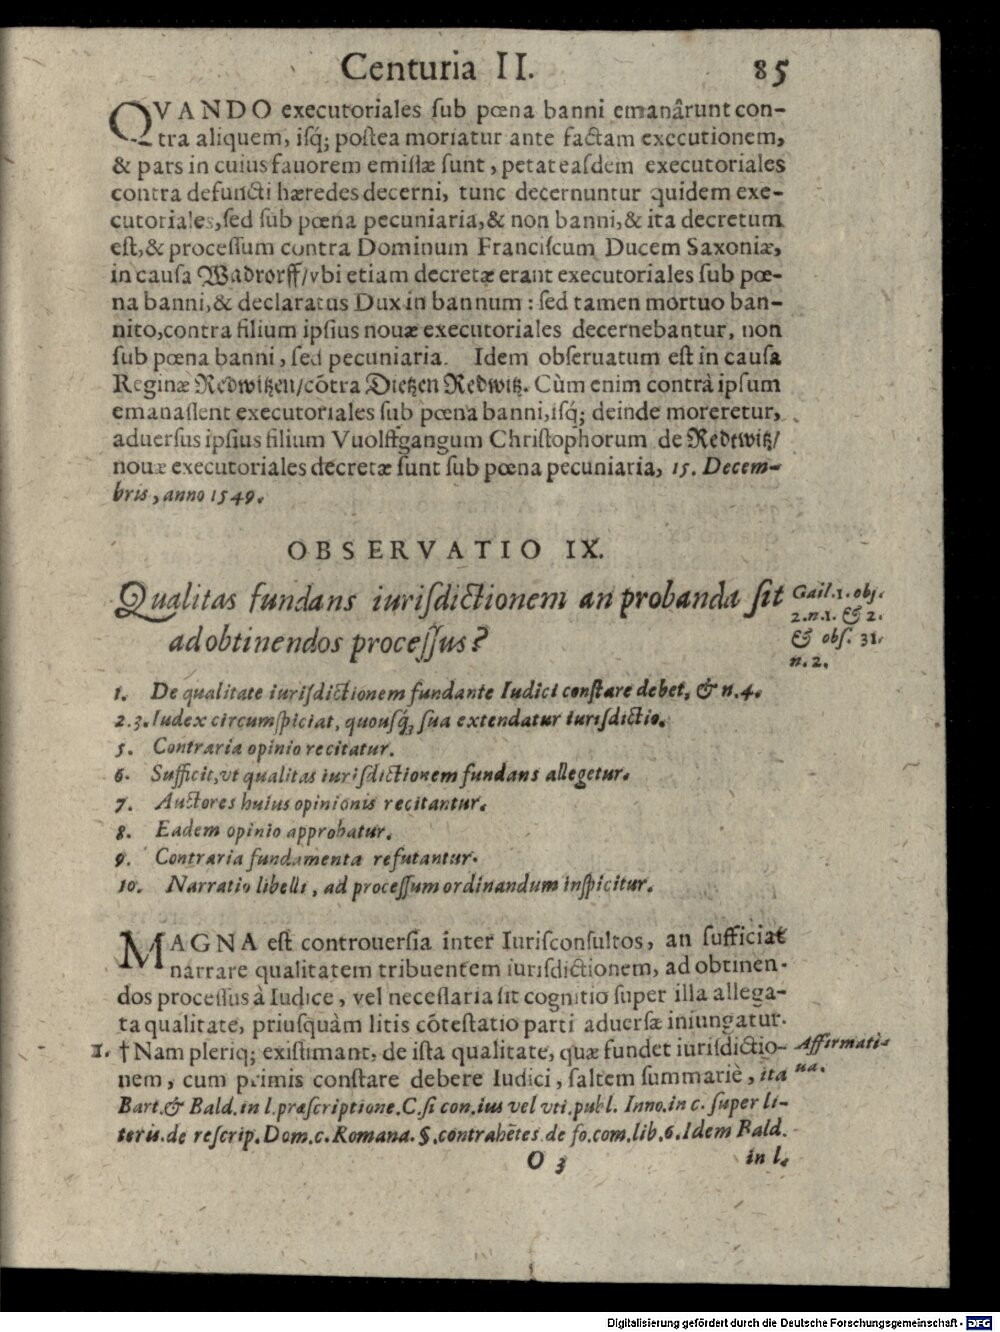 Centuria II. 85
QVANDO executoriales ſub pœna banni emanârunt con-
tra aliquem, iſq́; poſtea moriatur ante factam executionem,
& pars in cuius fauorem emiſſæ ſunt, petat eaſdem executoriales
contra defuncti hæredes decerni, tunc decernuntur quidem exe-
cutoriales, ſed ſub pœna pecuniaria, & non banni, & ita decretum
eſt, & proceſſum contra Dominum Franciſcum Ducem Saxoniæ,
in cauſa Wadrorff/ vbi etiam decretæ erant executoriales ſub pœ-
na banni, & declaratus Dux in bannum: ſed tamen mortuo ban-
nito, contra filium ipſius nouæ executoriales decernebantur, non
ſub pœna banni, ſed pecuniaria. Idem obſeruatum eſt in cauſa
Reginæ Redwitzen/ cõtra Dietzen Redwitz. Cùm enim contrà ipſum
emanaſſent executoriales ſub pœna banni, iſq́; deinde moreretur,
aduerſus ipſius filium Vuolffgangum Chriſtophorum de Redtwitz/
nouæ executoriales decretæ ſunt ſub pœna pecuniaria, 15. Decem-
bris, anno 1549.
OBSERVATIO IX.
Qualitas fundans iuriſdictionem an probanda ſit
ad obtinendos proceſſus?
Gail. 1. obſ.
2. n. 1. & 2.
& obſ. 31.
n. 2.
1. De qualitate iuriſdictionem fundante Iudici conſtare debet, & n. 4.
2. 3. Iudex circumſpiciat, quouſq́; ſua extendatur iuriſdictio.
5. Contraria opinio recitatur.
6. Sufficit, vt qualitas iuriſdictionem fundans allegetur.
7. Auctores huius opinionis recitantur.
8. Eadem opinio approbatur.
9. Contraria fundamenta refutantur.
10. Narratio libelli, ad proceſſum ordinandum inſpicitur.
MAGNA eſt controuerſia inter Iuriſconſultos, an ſufficiat
narrare qualitatem tribuentem iuriſdictionem, ad obtinen-
dos proceſſus à Iudice, vel neceſſaria ſit cognitio ſuper illa allega-
ta qualitate, priuſquàm litis cõteſtatio parti aduerſæ iniungatur.
1. † Nam pleriq; exiſtimant, de iſta qualitate, quæ fundet iuriſdictio-
nem, cum primis conſtare debere Iudici, ſaltem ſummariè, ita
Affirmati-
ua.
Bart. & Bald. in l. præſcriptione. C. ſi con. ius vel vti. publ. Inno. in c. ſuper li-
teris. de reſcrip. Dom. c. Romana. §. contrahẽtes. de fo. com. lib. 6. Idem Bald.
O 3 in l.
Digitalisierung gefördert durch die Deutsche Forschungsgemeinschaft - DFG